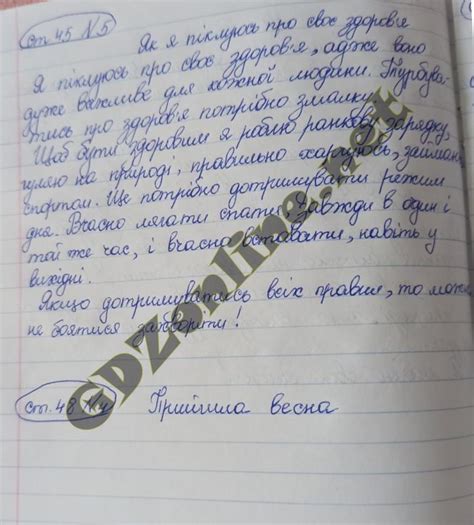 ст 45 №5
Як я піклуюсь про своє здоров'я
Я піклуюсь про своє здоров'я, адже воно
дуже важливе для кожної людини. Турбува-
тись про здоров'я потрібно змалку.
Щоб бути здоровим я роблю ранкову зарядку,
гуляю на природі, правильно харчуюсь, займаюсь
спортом. Ще потрібно дотримувати режим
дня. Вчасно лягати спати, завжди в один і
той же час, і вчасно вставати, навіть у
вихідні.
Якщо дотримуватись всіх правил, то можна
не боятися захворіти!
ст. 48 №4 Прийшла весна
GDZonline.net